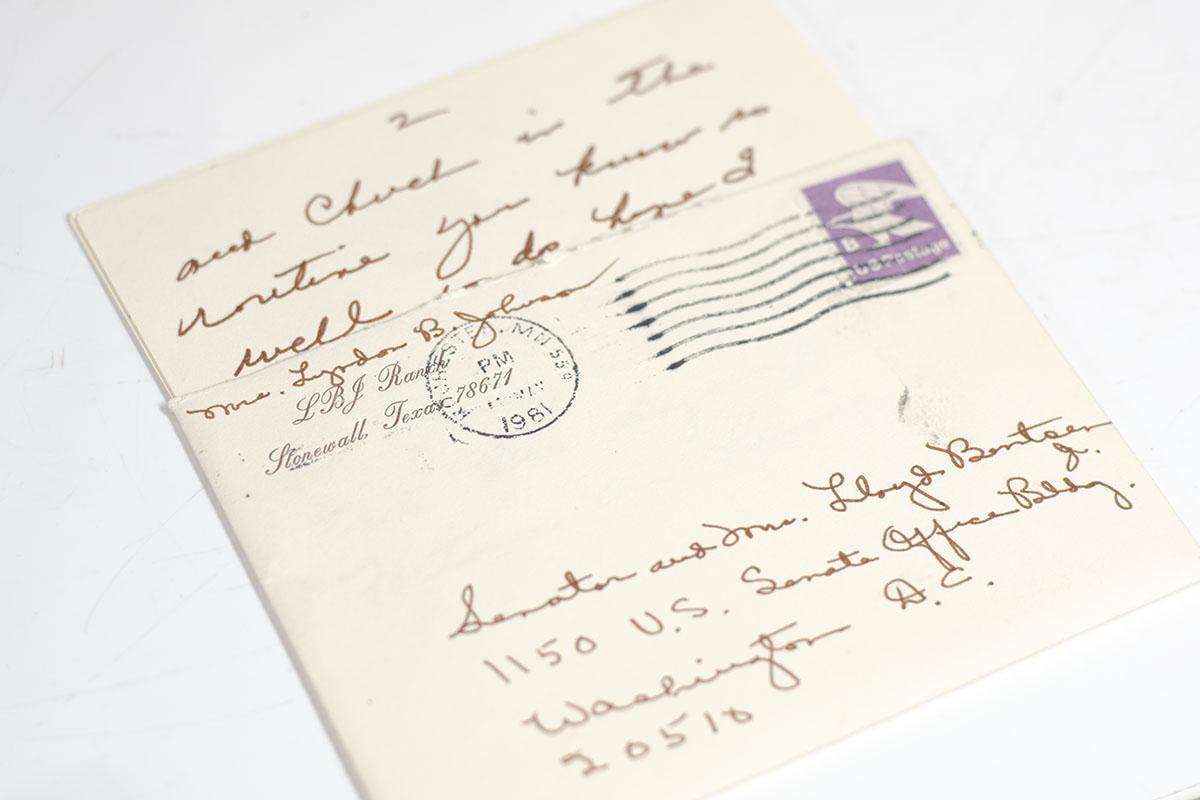 2
and Chuck in the
routine you know so
well so do hope I
Mrs. Lyndon B. Johnson
LBJ Ranch
Stonewall, Texas 78671
ROCHESTER, MN 559
PM
MAY
1981
B
US Postage
Senator and Mrs. Lloyd Bentsen
Jr.
1150 U.S. Senate Office Bldg.
Washington D.C.
20510